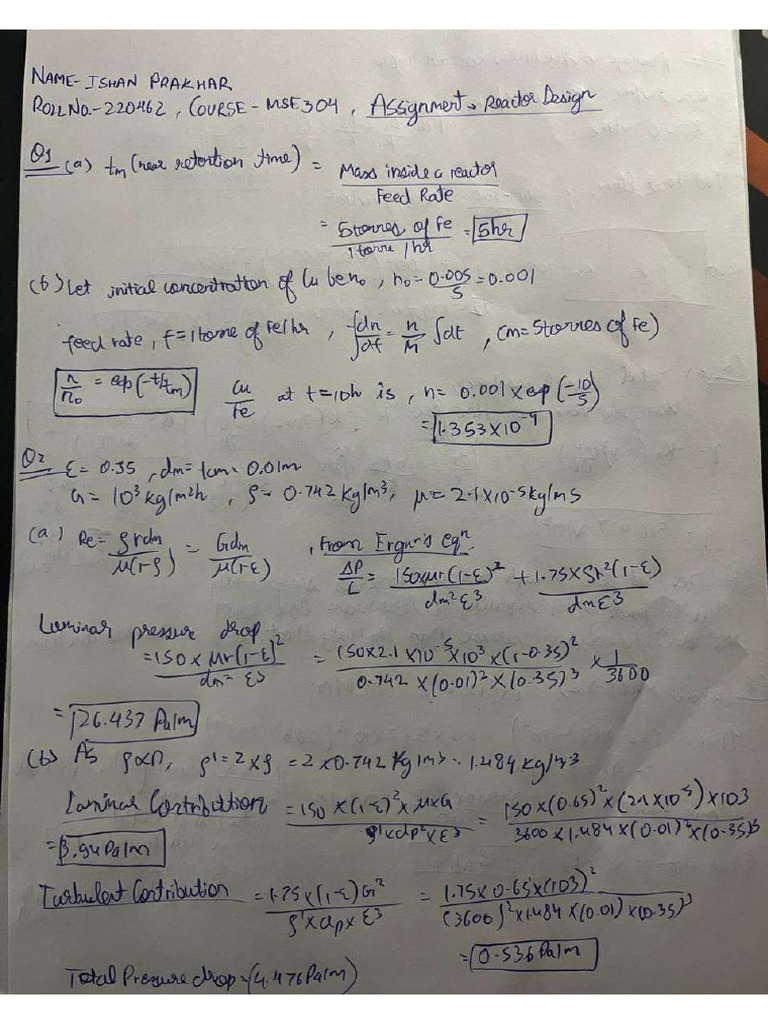 NAME- ISHAN PRAKHAR
ROLL NO.-220462, COURSE - MSE304, Assignment → Reactor Design
Q1 (a) tm (near retention time) = Mass inside a reactor / Feed Rate
= 5 tonnes of Fe / 1 tonne / hr = 5hr
(b) Let initial concentration of Cu be n₀, n₀ = 0.005/5 = 0.001
feed rate, f = 1 tonne of Fe/hr, ∫dn/∫df = n/M ∫dt, (m = 5 tonnes of Fe)
n/n₀ = exp(-t/tm) Cu/Fe at t=10h is, n = 0.001 × exp(-10/5)
= 1.353×10⁻⁴
Q2 ε = 0.35, dm = 1cm = 0.01m
G = 10³ kg/m²h, ρ = 0.742 kg/m³, μ = 2.1×10⁻⁵ kg/ms
(a) Re = ρrdm/μ(1-ρ) = Gdm/μ(1-ε), From Ergun's eqⁿ
ΔP/L = 150×μr(1-ε)²/dm²ε³ + 1.75×ρr²(1-ε)/dmε³
Laminar pressure drop
= 150 × μr(1-ε)²/dm² ε³ = 150×2.1×10⁻⁵×10³×(1-0.35)²/0.742×(0.01)²×(0.35)³ × 1/3600
= 126.437 Pa/m
(b) As ρ∝P, ρ' = 2×ρ = 2×0.742 kg/m³ = 1.484 kg/m³
Laminar Contribution = 150×(1-ε)²×μ×G/ρ'×dp²×ε³ = 150×(0.65)²×(2.1×10⁻⁵)×103/3600×1.484×(0.01)²×(0.35)³
= 3.94 Pa/m
Turbulent Contribution = 1.75×(1-ε)G²/ρ'×dp×ε³ = 1.75×0.65×(103)²/(3600)²×1.484×(0.01)×(0.35)³
= 0.536 Pa/m
Total Pressure drop = (4.476 Pa/m)